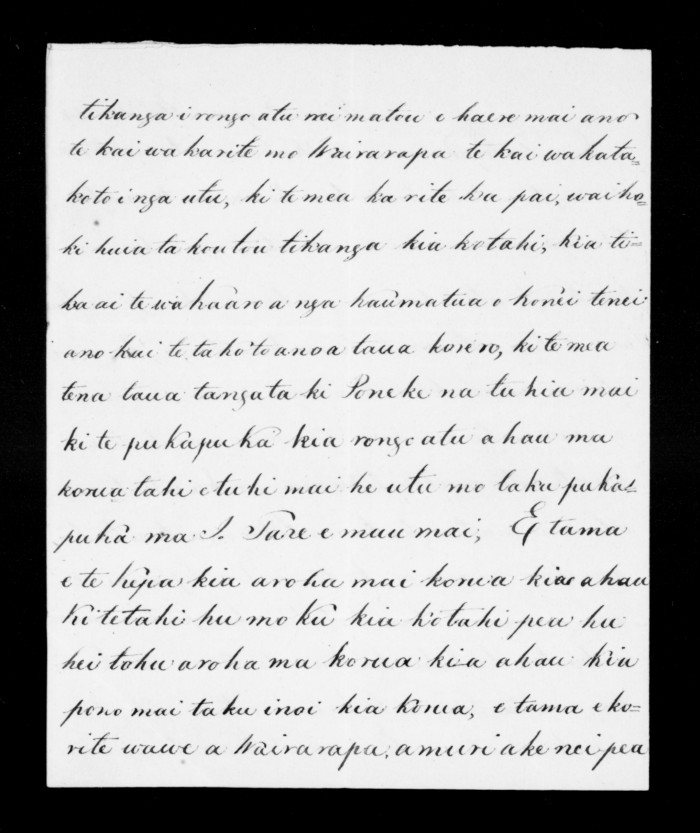 tikanga i rongo atu nei matou e haere mai ano
te kai wakarite mo Wairarapa te kai wakata=
koto i nga utu, ki te mea ka rite ka pai, waiho=
ki huia ta koutou tikanga kia kotahi, kia ti=
ka ai te wahaaro a nga haumatua o konei tenei
ano kai te takoto ano a taua korero, ki te mea
tena taua tangata ki Poneke na tuhia mai
ki te pukapuka kia rongo atu ahau ma
korua tahi e tuhi mai he utu mo taku puka=
puka ma J. Tare e mau mai, E tama
e te Kepa kia aroha mai korua kia ahau
ki tetahi hu mo ku kia kotahi pea hu
hei tohu aroha ma korua kia ahau kia
pono mai taku inoi kia korua, e tama e ko=
rite wawe a Wairarapa, amuri ake nei pea